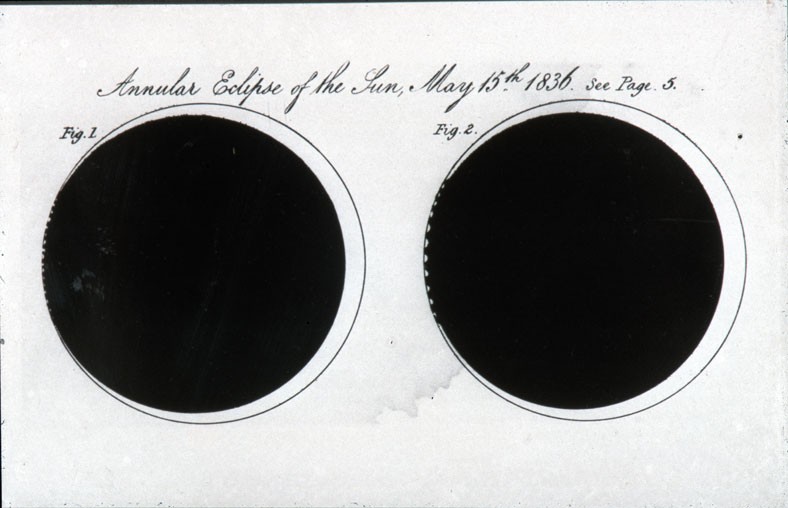 Annular Eclipse of the Sun, May 15th 1836. See Page. 5.
Fig. 1.
Fig. 2.